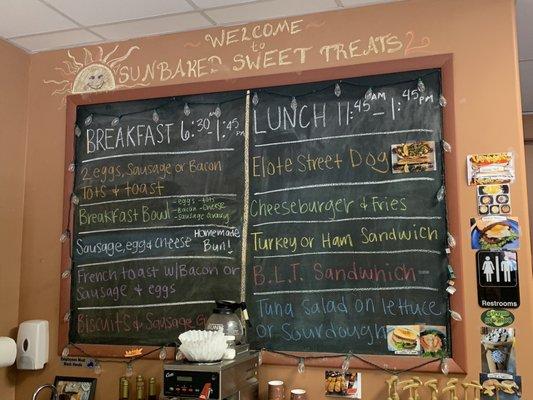 WELCOME
to
SUNBAKED SWEET TREATS 2
BREAKFAST 6:30 AM - 1:45 PM
2 eggs, Sausage or Bacon
Tots & toast
Breakfast Bowl
-eggs -tots
-bacon -cheese
-sausage gravy
Sausage, egg & cheese
Homemade
Bun!
French toast w/Bacon or
Sausage & eggs
Biscuits & Sausage
LUNCH 11:45 AM - 1:45 PM
Elote Street Dog
Cheeseburger & Fries
Turkey or Ham Sandwich
B.L.T. Sandwhich
Tuna Salad on lettuce
or Sourdough
RESTROOMS